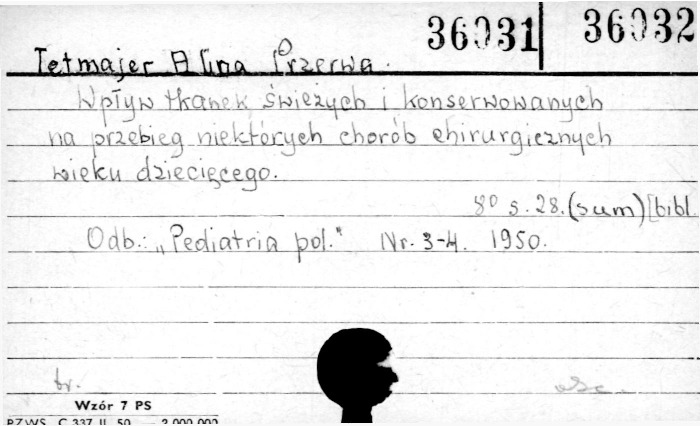 36031 36032
Tetmajer Alina Przerwa.
Wpływ tkanek świeżych i konserwowanych
na przebieg niektórych chorób chirurgicznych
wieku dziecięcego.
8° s. 28. (sum) [bibl.
Odb.: „Pediatria pol." Nr. 3-4. 1950.
br.
Wzór 7 PS
PZWS. C 337 II. 50. — 2.000.000